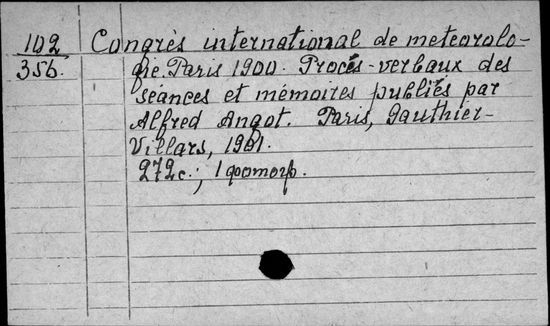 102 Congrès international de meteorolo-
35b. gie. Paris 1900. Procès-verbaux des
séances et mémoires publiés par
Alfred Angot. Paris, Gauthier-
Villars, 1901.
272c.; 1 фотогр.